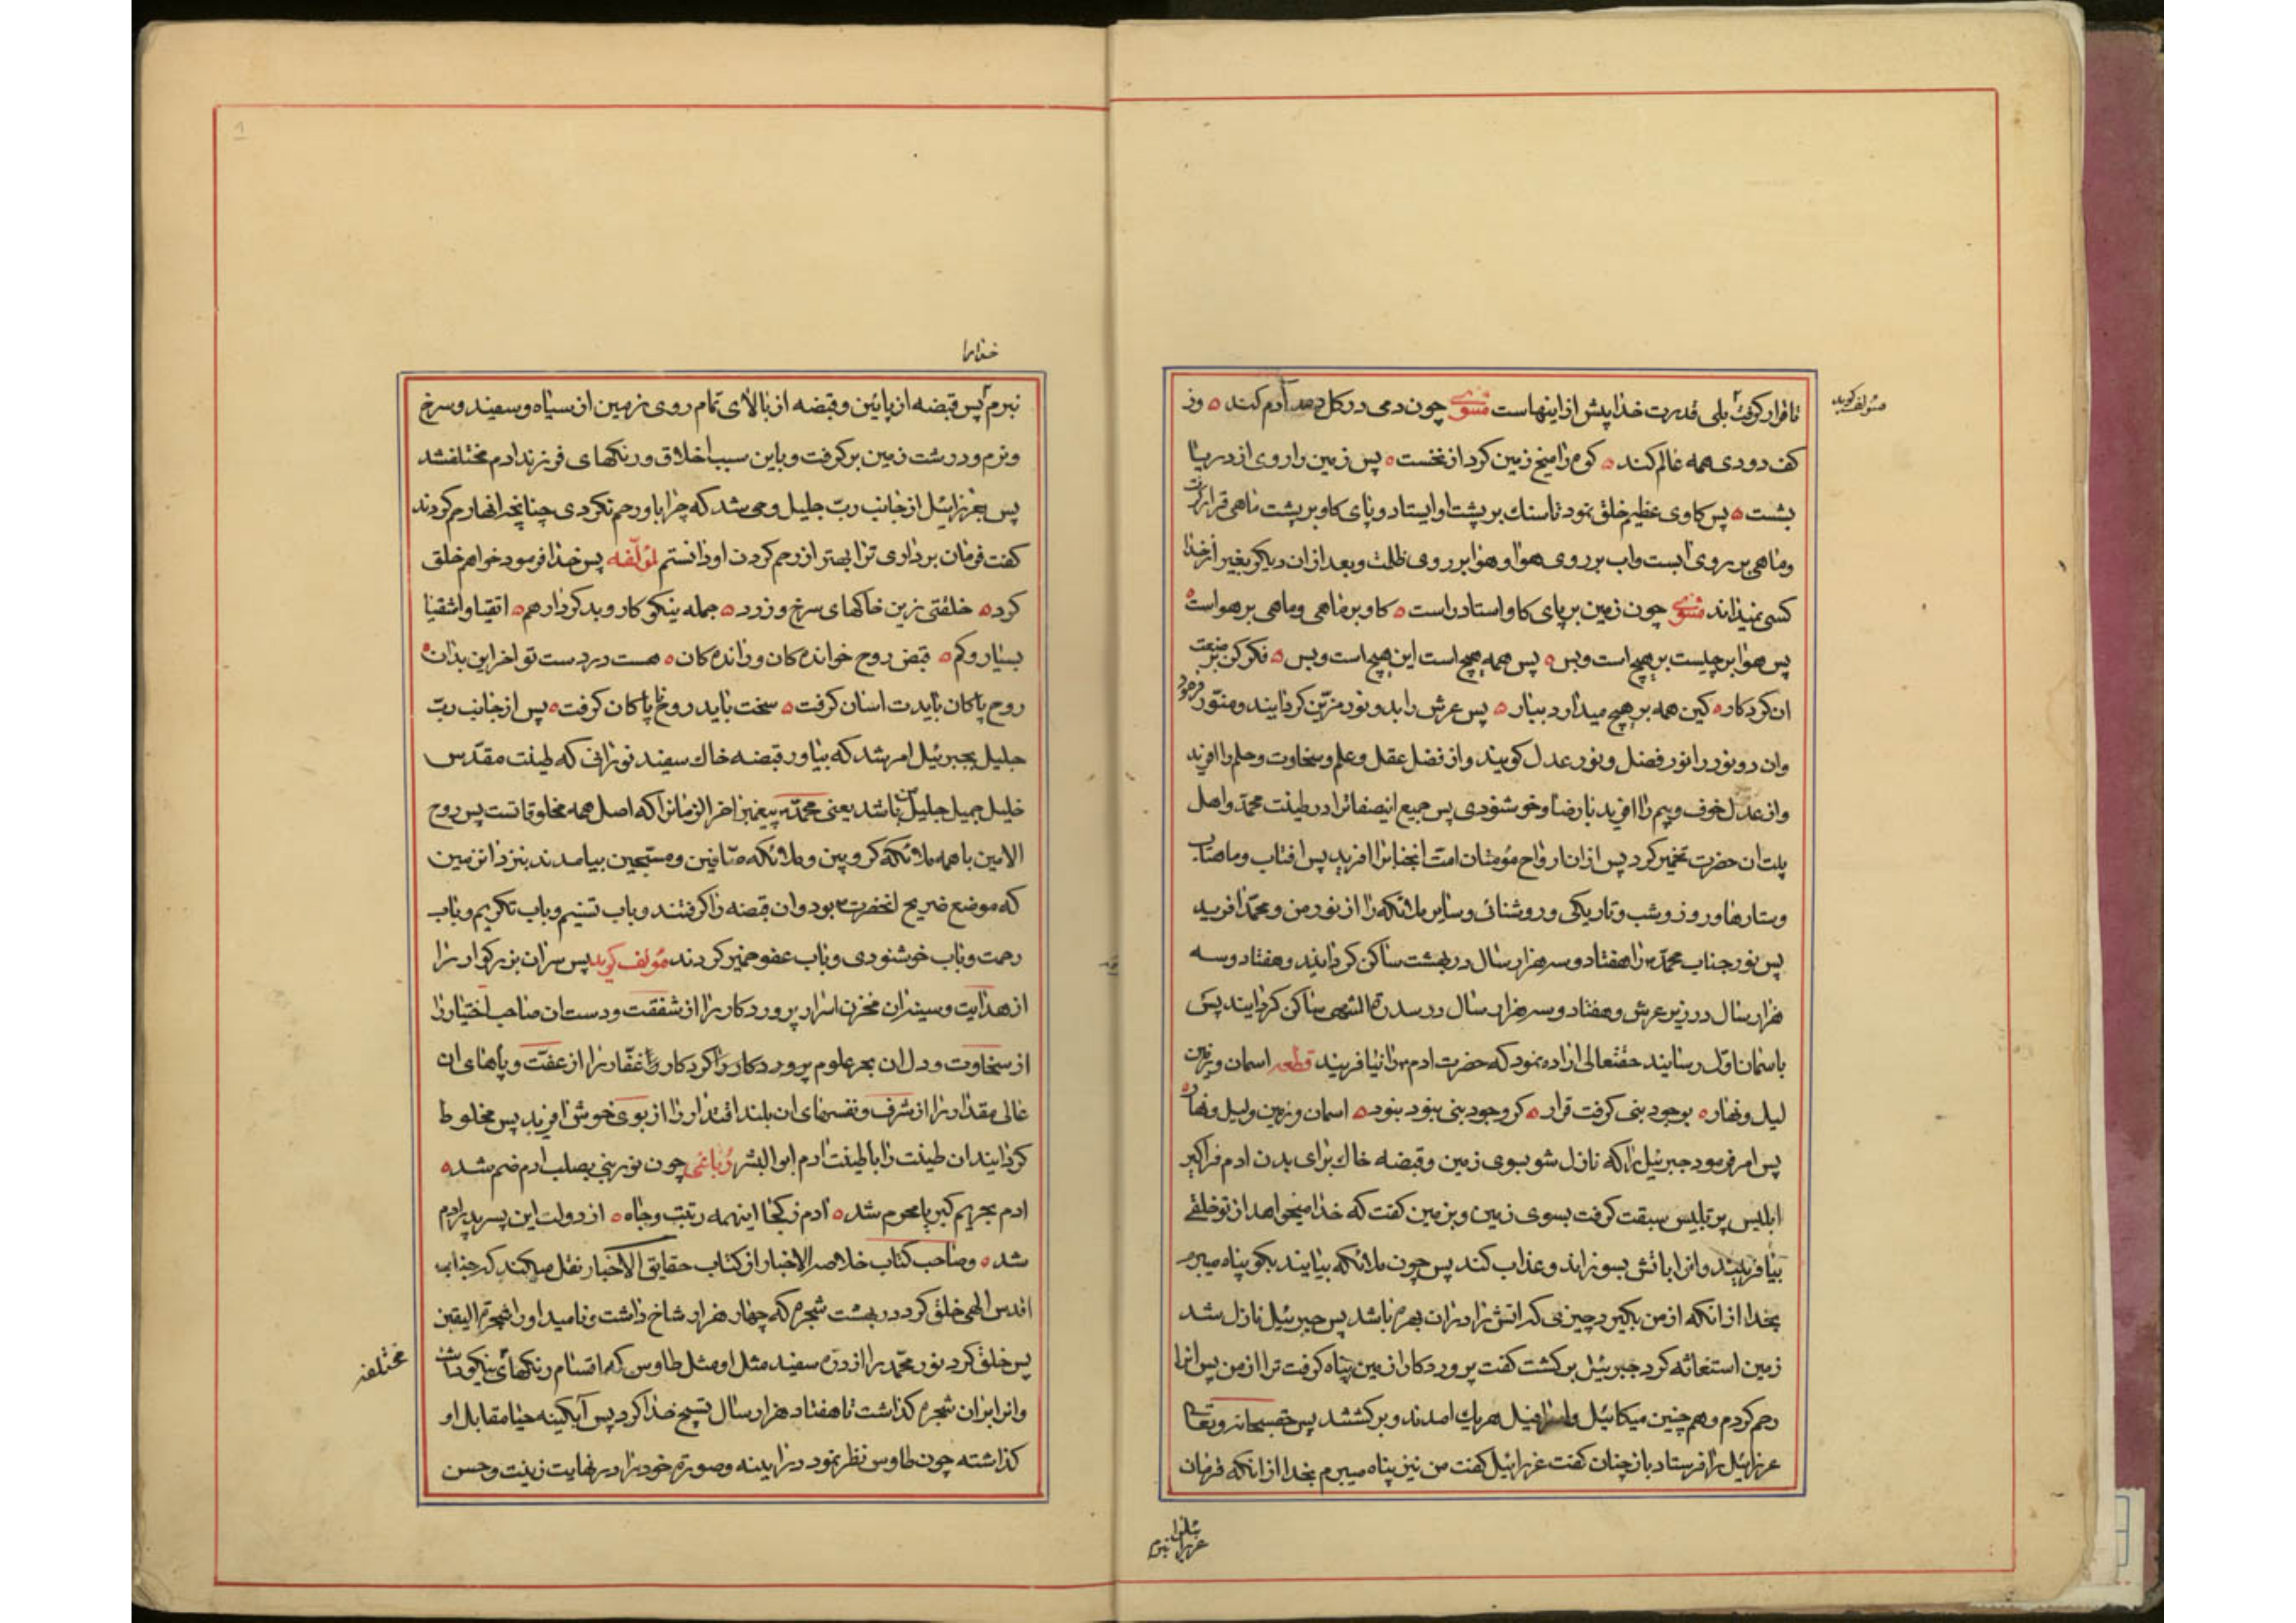 مؤلف کوید
تا قرار کرفت بلی قدرت خدا پیش از اینهاست مثنوی چون دمی در کل دمد آدم کند ه وز
کف دودی همه عالم کند ه کوه را میخ زمین کرد از نخست ه پس زمین را روی از دریا
بشست ه پس کاوی عظیم خلق نمود تا سنك بر پشت او ایستاد و پای کاو بر پشت ماهی قرار کرفت
و ماهی بر روی ابست و اب بر روی هوا و هوا بر روی ظلمت و بعد از ان دیکر بغیر از خدا
کسی نمیداند مثنوی چون زمین بر پای کاو استاده راست ه کاو بر ماهی و ماهی بر هواست ه
پس هوا بر چیست بر هیچ است و بس ه پس همه هیچ است این هیچ است و بس ه فکر کن بر صنعت
ان کردکار ه کین همه بر هیچ میدارد بیار ه پس عرش را بدو نور مزین کردانیند و منور فرمود
وان دو نور را نور فضل و نور عدل کویند و از فضل عقل و علم و سخاوت و حلم را افرید
و از عدل خوف و بیم را افرید با رضا و خوشنودی پس جمیع اینصفاترا در طینت محمد و اهل
بیت ان حضرت تخمیر کرد پس از ان ارواح مؤمنان امت انجنابرا افرید پس افتاب و ماهتاب
و ستارها و روز و شب و تاریکی و روشنائی و سایر ملائکه را از نور من و محمد افرید
پس نور جناب محمد را هفتاد و سه هزار سال در بهشت ساکن کردانید و هفتاد و سه
هزار سال در زیر عرش و هفتاد و سه هزار سال در سدرة المنتهی ساکن کردانیند پس
باسمان اول رسانیند حقتعالی اراده نمود که حضرت ادم را بیافریند قطعه اسمان و زمین
لیل و نهار ه بوجود نبی کرفت قرار ه کر وجود نبی نبود نبود ه اسمان و زمین و لیل و نهار ه
پس امر فرمود جبرئیل را که نازل شو بسوی زمین و قبضه خاك برای بدن ادم فرا کیر
ابلیس پر تلبیس سبقت کرفت بسوی زمین و بزمین کفت که خدا میخواهد از تو خلقی
بیافریند و انرا باتش بسوزاند و عذاب کند پس چون ملائکه بیایند بکو پناه میبرم
بخدا از انکه از من بکیرد چیزی که اتش را در ان بهره باشد پس جبرئیل نازل شد
زمین استغاثه کرد جبرئیل برکشت کفت پروردکارا زمین پناه کرفت ترا از من پس انرا
رحم کردم و همچنین میکائیل و اسرافیل هر یك امدند و برکشتند پس حقسبحانه و تعالی
عزرائیل را فرستاد باز چنان کفت عزرائیل کفت من نیز پناه میبرم بخدا از انکه فرمان
خدا را
نبرم پس قبضه از پائین و قبضه از بالای تمام روی زمین از سیاه و سفید و سرخ
و نرم و درشت زمین برکرفت و باین سبب اخلاق و رنکهای فرزند ادم مختلف شد
پس بعزرائیل از جانب رب جلیل وحی شد که چرا باو رحم نکردی چنانچه انها رحم کردند
کفت فرمان برداری ترا بهتر از رحم کردن او دانستم لمؤلفه پس خدا فرمود خواهم خلق
کرد ه خلقتی زین خاکهای سرخ و زرد ه جمله نیکو کار و بد کردار هم ه اتقیا و اشقیا
بسیار و کم ه قبض روح خوانده کان و رانده کان ه هست در دست تو اخر این بدان ه
روح پاکان بایدت اسان کرفت ه سخت باید روح ناپاکان کرفت ه پس از جانب رب
جلیل بجبرئیل امر شد که بیاور قبضه خاك سفید نورانی که طینت مقدس
خلیل جمیل جلیل من باشد یعنی محمد پیغمبر اخر الزمانرا که اصل همه مخلوقاتست پس روح
الامین با همه ملائکه کروبین و ملائکه صافین و مسبحین بیامدند بنزد ان زمین
که موضع ضریح انحضرت بود و ان قبضه را کرفتند و باب تسنیم و باب تکریم و باب
رحمت و باب خوشنودی و باب عفو خمیر کردند مؤلف کوید پس سر ان بزرکوار را
از هدایت و سینه ان مخزن اسرار پروردکار را از شفقت و دست ان صاحب اختیار را
از سخاوت و دل ان بحر علوم پروردکار را از عفت و پاهای ان
عالی مقدار را از شرف و نفسهای ان بلند اقتدار را از بوی خوش افرید پس مخلوط
کردانیند ان طینت را با طینت ادم ابو البشر رباعی چون نور نبی بصلب ادم ضم شد ه
ادم بحریم کبریا محرم شد ه ادم ز کجا اینهمه رتبت و جاه ه از دولت این پسر پدر ادم
شد ه و صاحب کتاب خلاصة الاخبار از کتاب حقایق الاخبار نقل میکند که جناب
اقدس الهی خلق کرد در بهشت شجره که چهار هزار شاخ داشت و نامید او را شجرة الیقین
پس خلق کرد نور محمد را از دره سفید مثل او مثل طاوس که اقسام رنکهای نیکو داشت
مختلفه
و انرا بران شجره کذاشت تا هفتاد هزار سال تسبیح خدا کرد پس آبکینه حیا مقابل او
کذاشته چون طاوس نظر نمود در ایینه و صورة خود را در نهایت زینت و حسن